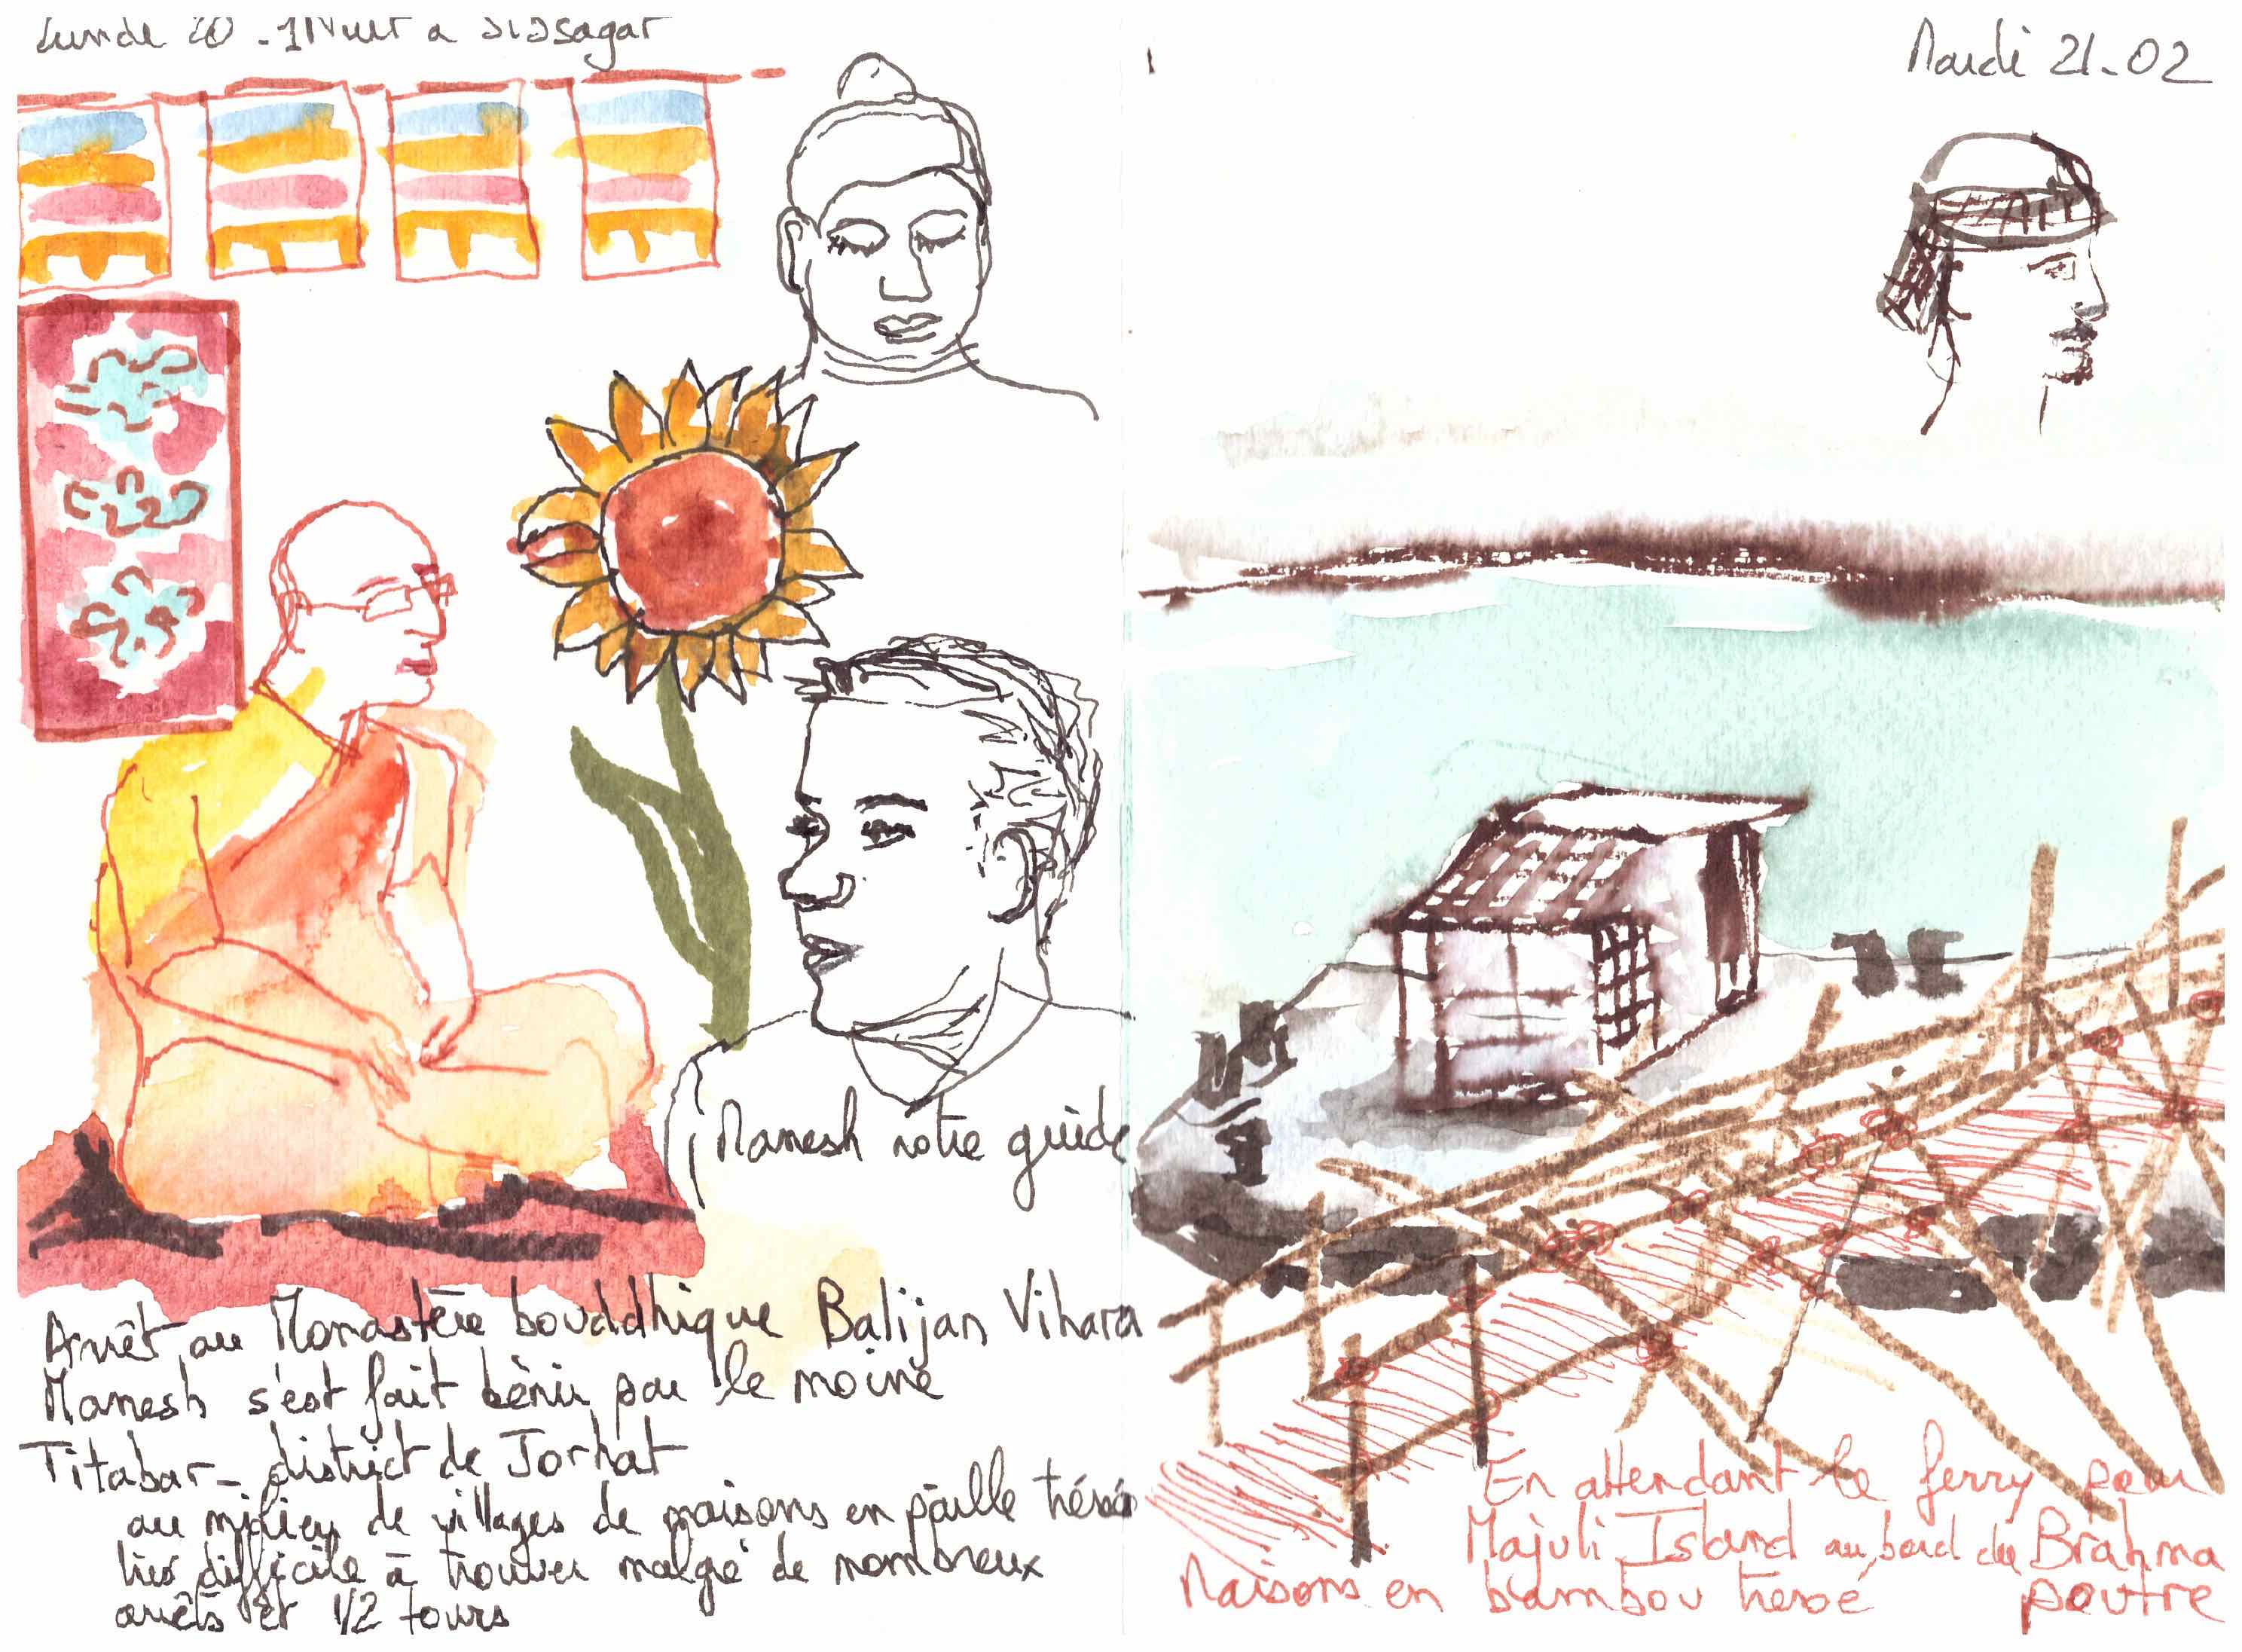 Lundi 20 - 1 Nuit a Sibsagar
Mardi 21-02
Manesh notre guide
Arrêt au Monastère bouddhique Balijan Vihara
Manesh s'est fait bénir par le moine
Titabar - district de Jorhat
au milieu de villages de maisons en paille
très difficile à trouver malgré de nombreux
arrêts et 1/2 tours
En attendant le ferry pour
Majuli Island au bord du Brahma
poutre
Maisons en bambou tressé